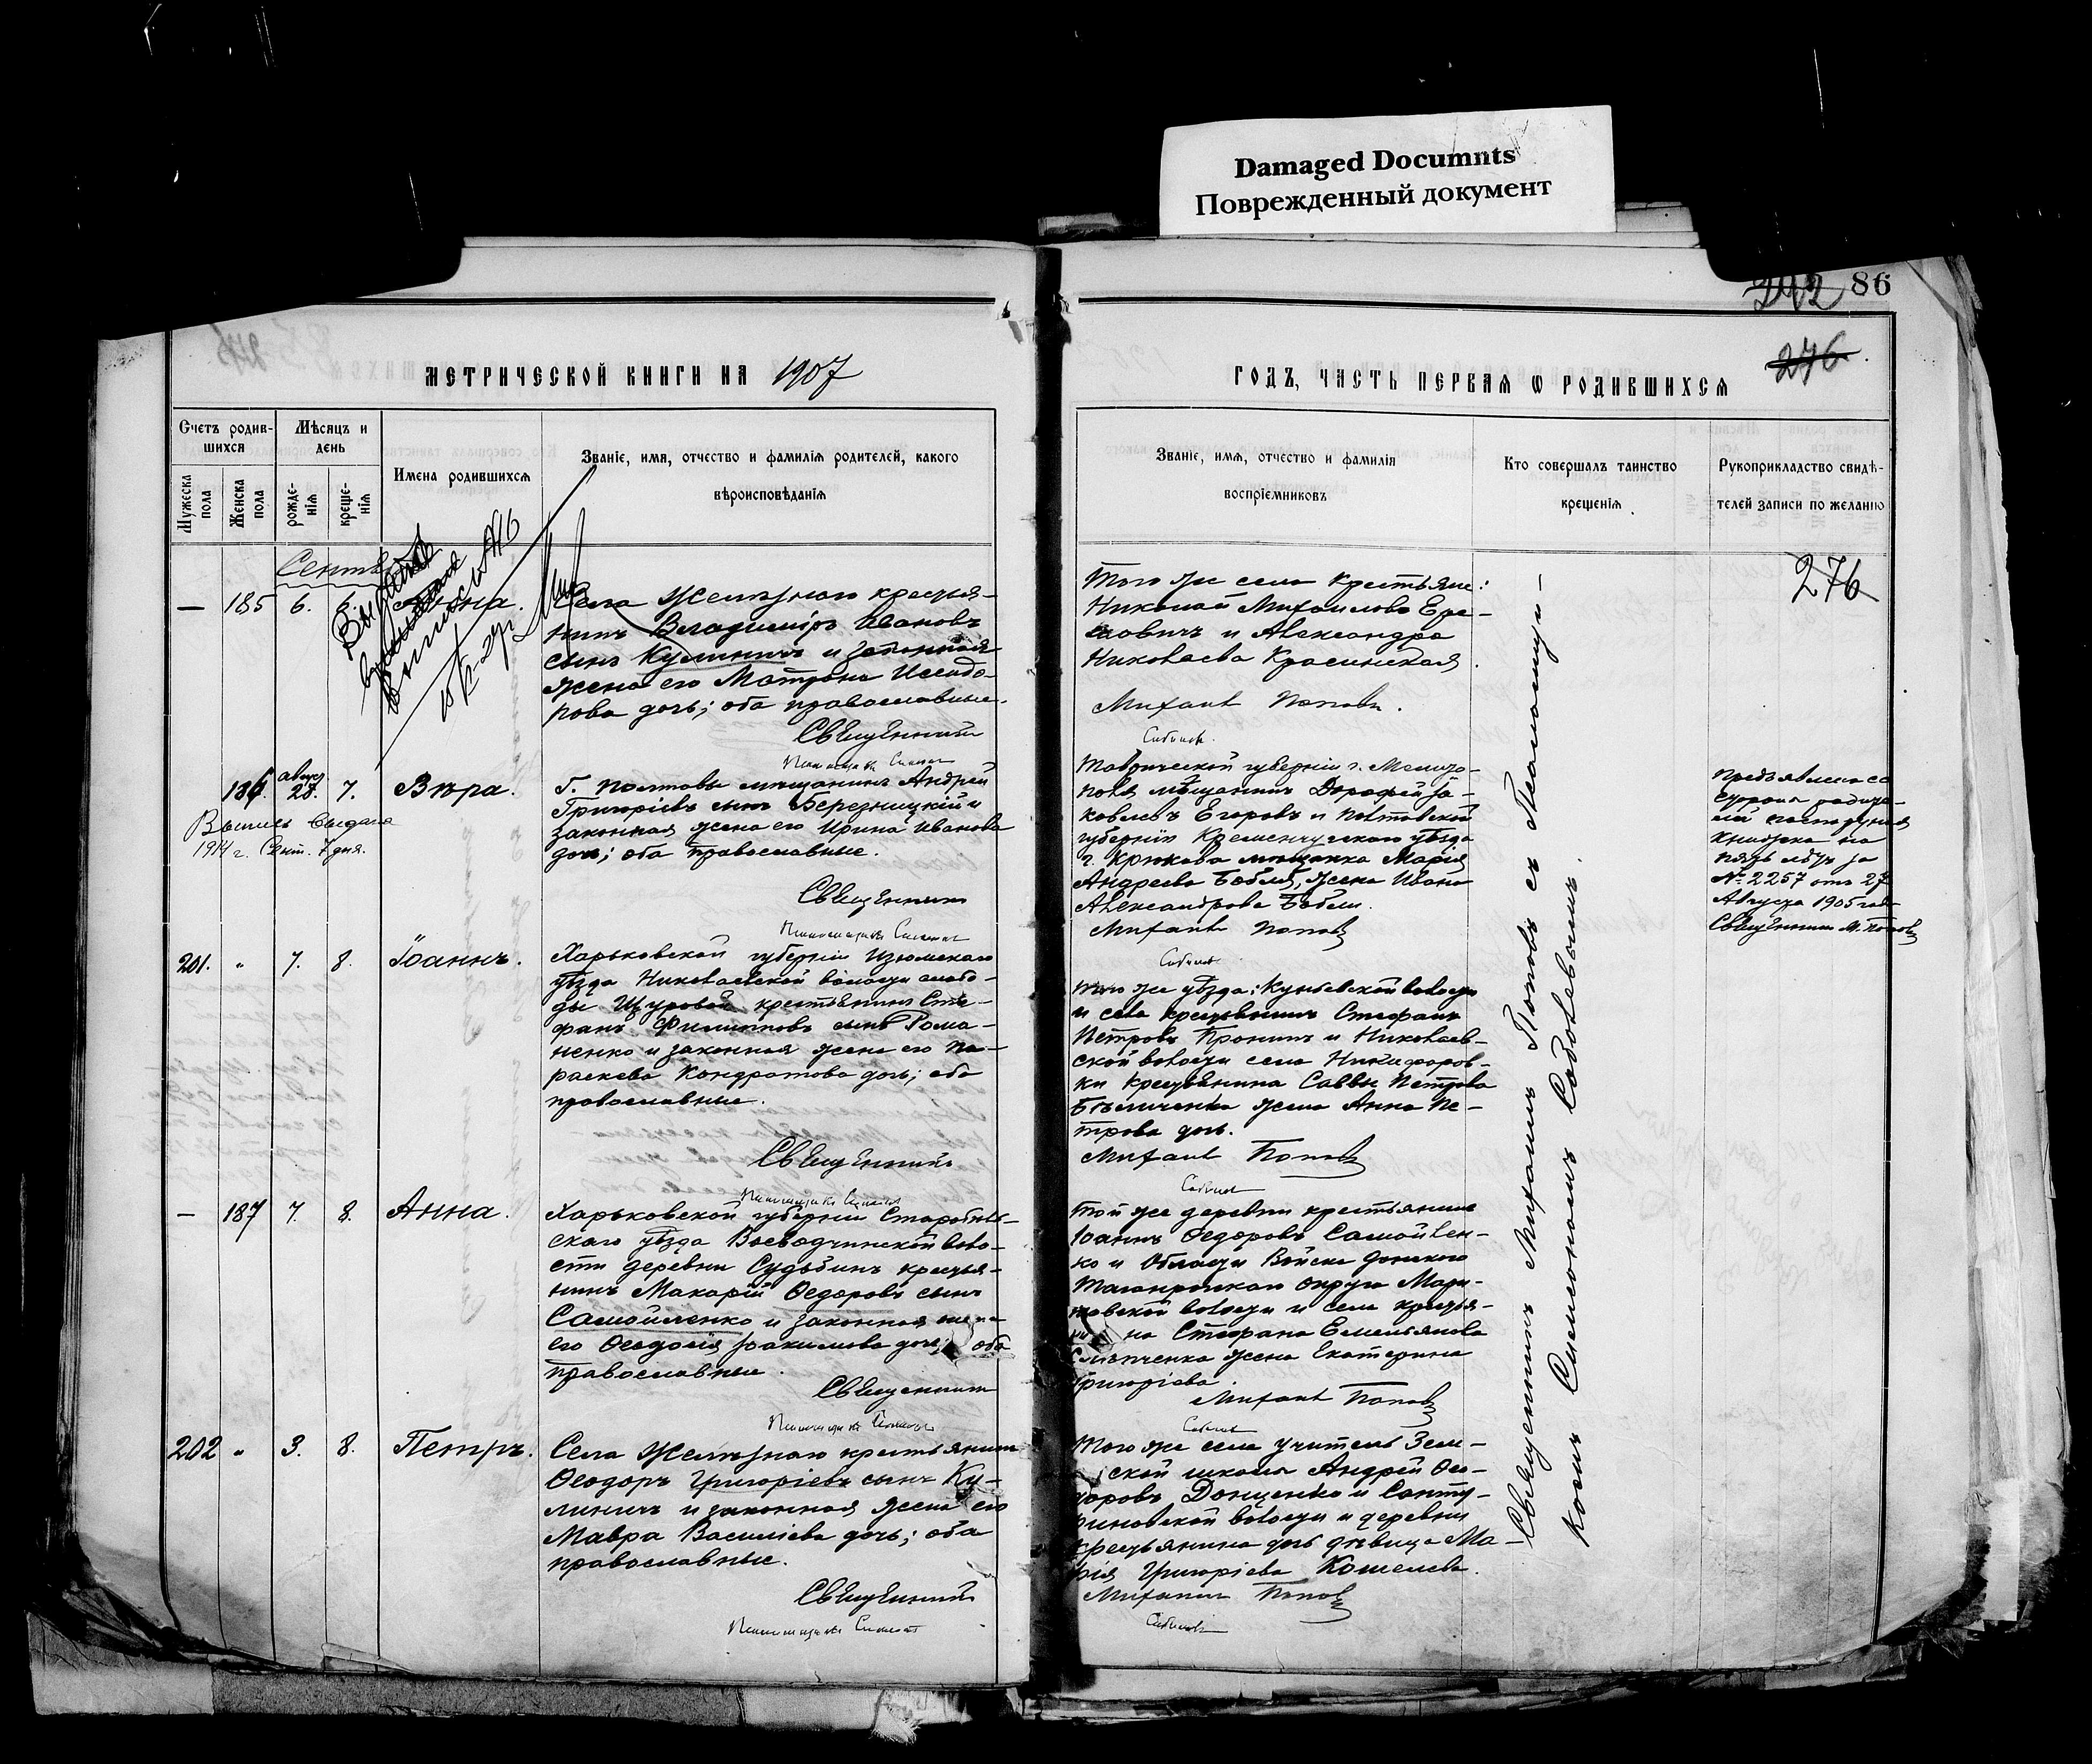 Damaged Documnts
Поврежденный документ
86
276
МЕТРИЧЕСКОЙ КНИГИ НА 1907
ГОДЪ, ЧАСТЬ ПЕРВАЯ Ѡ РОДИВШИХСЯ
Счетъ родив-
шихся
Мужеска
пола
Женска
пола
Мѣсяцъ и
день
рожде-
нія
креще-
нія
Имена родившихся
Званіе, имя, отчество и фамилія родителей, какого
вѣроисповѣданія
Званіе, имя, отчество и фамилія
воспріемниковъ
Кто совершалъ таинство
крещенія
Рукоприкладство свидѣ-
телей записи по желанію
276
— 185 6. 6.
Села Желѣзнаго крестья-
нинъ Владиміръ Ивановъ
сынъ Кулиничъ и законная
жена его Матрона Исидо-
рова дочь; оба православные.
Священникъ
Того же села крестьяне:
Николай Михаиловъ Ере-
мовичъ и Александра
Николаева Красинская.
Михаилъ Поповъ.
186. август 28. 7. Вѣра.
Выпись выдана
1914 г. Сент. 7 дня.
Г. Полтавы мѣщанинъ Андрей
Григоріевъ сынъ Березницкій и
законная жена его Ирина Иванова
дочь; оба православные.
Священникъ
Таврической губерніи г. Мелито-
поля мѣщанинъ Дорофей Яковлевъ Егоровъ и Полтавской
губерніи Кременчугскаго уѣзда
г. Крюкова мѣщанка Марія
Андреева Бабля, жена Ивана
Александрова Бабли.
Михаилъ Поповъ
Предъявлена со
стороны родите-
лей паспортная
книжка на
пять лѣтъ за
№ 2257 отъ 27
Августа 1905 года
Священникъ М. Поповъ
201. „ 7. 8. Іоаннъ.
Харьковской губерніи Изюмскаго
уѣзда Николаевской волости слобо-
ды Щуровой крестьянинъ Сте-
фанъ Филипповъ сынъ Рома-
ненко и законная жена его Па-
раскева Кондратова дочь; оба
православные.
Священникъ
того же уѣзда: Куньевской волости
и села крестьянинъ Стефанъ
Петровъ Пронинъ и Николаев-
ской волости села Никифоров-
ки крестьянина Саввы Петрова
Бѣличенка жена Анна Пе-
трова дочь.
Михаилъ Поповъ
— 187 7. 8. Анна.
Харьковской губерніи Старобѣль-
скаго уѣзда Воеводчинской воло-
сти деревни Судьбинъ крестья-
нинъ Макарій Ѳедоровъ сынъ
Самойленко и законная жена
его Ѳеодосія Іоакимова дочь; оба
православные.
Священникъ
Той же деревни крестьянинъ
Іоаннъ Ѳедоровъ Самойлен-
ко и Области Войска Донского
Таганрогскаго округа
волости и села крестья-
на Стефана Емельянова
жена Екатерина
Григоріева.
Михаилъ Поповъ
202 „ 3. 8. Петръ.
Села Желѣзнаго крестьянинъ
Ѳеодоръ Григоріевъ сынъ Ку-
линичъ и законная жена его
Мавра Василіева дочь; оба
православные.
Священникъ
Того же села учитель Зем-
ской школы Андрей Ѳео-
доровъ Донценко и Санту-
риновской волости и деревни
крестьянина дочь дѣвица Ма-
рія Григоріева Кошелева.
Михаилъ Поповъ
Священникъ Михаилъ Поповъ съ Псаломщи-
комъ Симеономъ Садовскимъ.